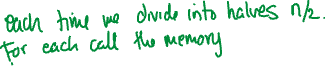 each time we divide into halves n/2.
For each call the memory